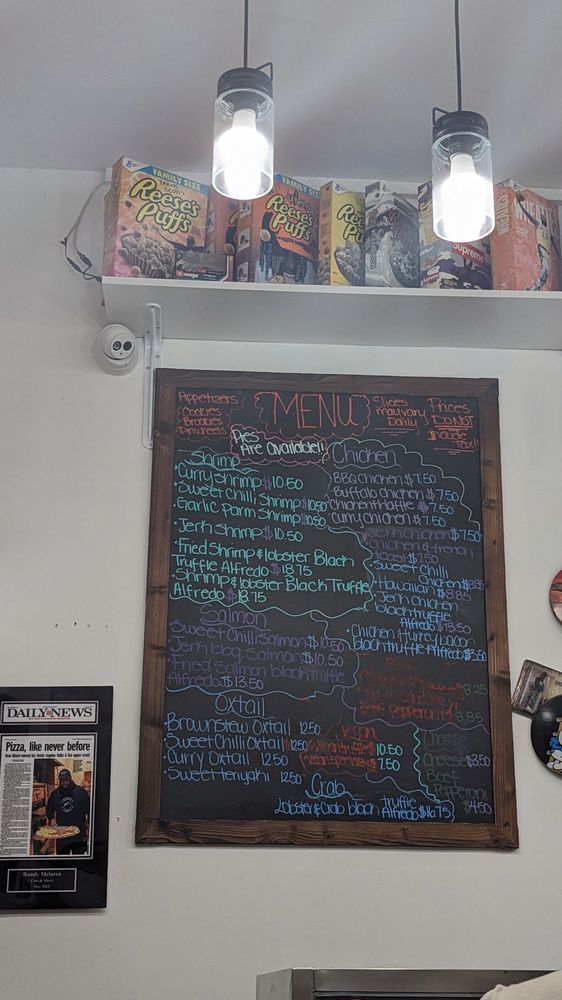 FAMILY SIZE
Reese's
Puffs
FAMILY SIZE
Reese's
Puffs
Reese's
Puffs
Supreme
WHEATIES
Appetizers
Cookies
Brookies
Pinwheels
MENU
Slices
may vary
Daily
Prices
DO NOT
Include
Tax!!
Pies
Are available!!
Shrimp
Curry shrimp $10.50
Sweet Chilli Shrimp $10.50
Garlic Parm Shrimp $10.50
Jerk Shrimp $10.50
Fried Shrimp & lobster Black
Truffle Alfredo $18.75
Shrimp & lobster Black Truffle
Alfredo $18.75
Chicken
BBQ Chicken $7.50
Buffalo Chicken $7.50
Chicken & Waffle $7.50
Curry Chicken $7.50
Jerk Chicken $7.50
Chicken & French
toast $7.50
Sweet Chilli
Chicken $8.85
Hawaiian $8.85
Jerk Chicken
black truffle
Alfredo $13.50
Chicken Turkey bacon
black truffle Alfredo $13.50
Salmon
Sweet Chilli Salmon $10.50
Jerk bbq Salmon $10.50
Fried Salmon black truffle
Alfredo $13.50
Oxtail
Brownstew Oxtail 12.50
Sweet Chilli Oxtail 12.50
Curry Oxtail 12.50
Sweet Teriyaki 12.50
Beef Pepperoni
8.85
Vegan
Vegan truffle 10.50
Vegan specialty 7.50
Cheese
Cheese $3.50
Beef
Pepperoni
$4.50
Crab
Lobster & Crab black Truffle
Alfredo $16.75
DAILY NEWS
Pizza, like never before
Randy Mclaren
Cuts & Slices
May 2022